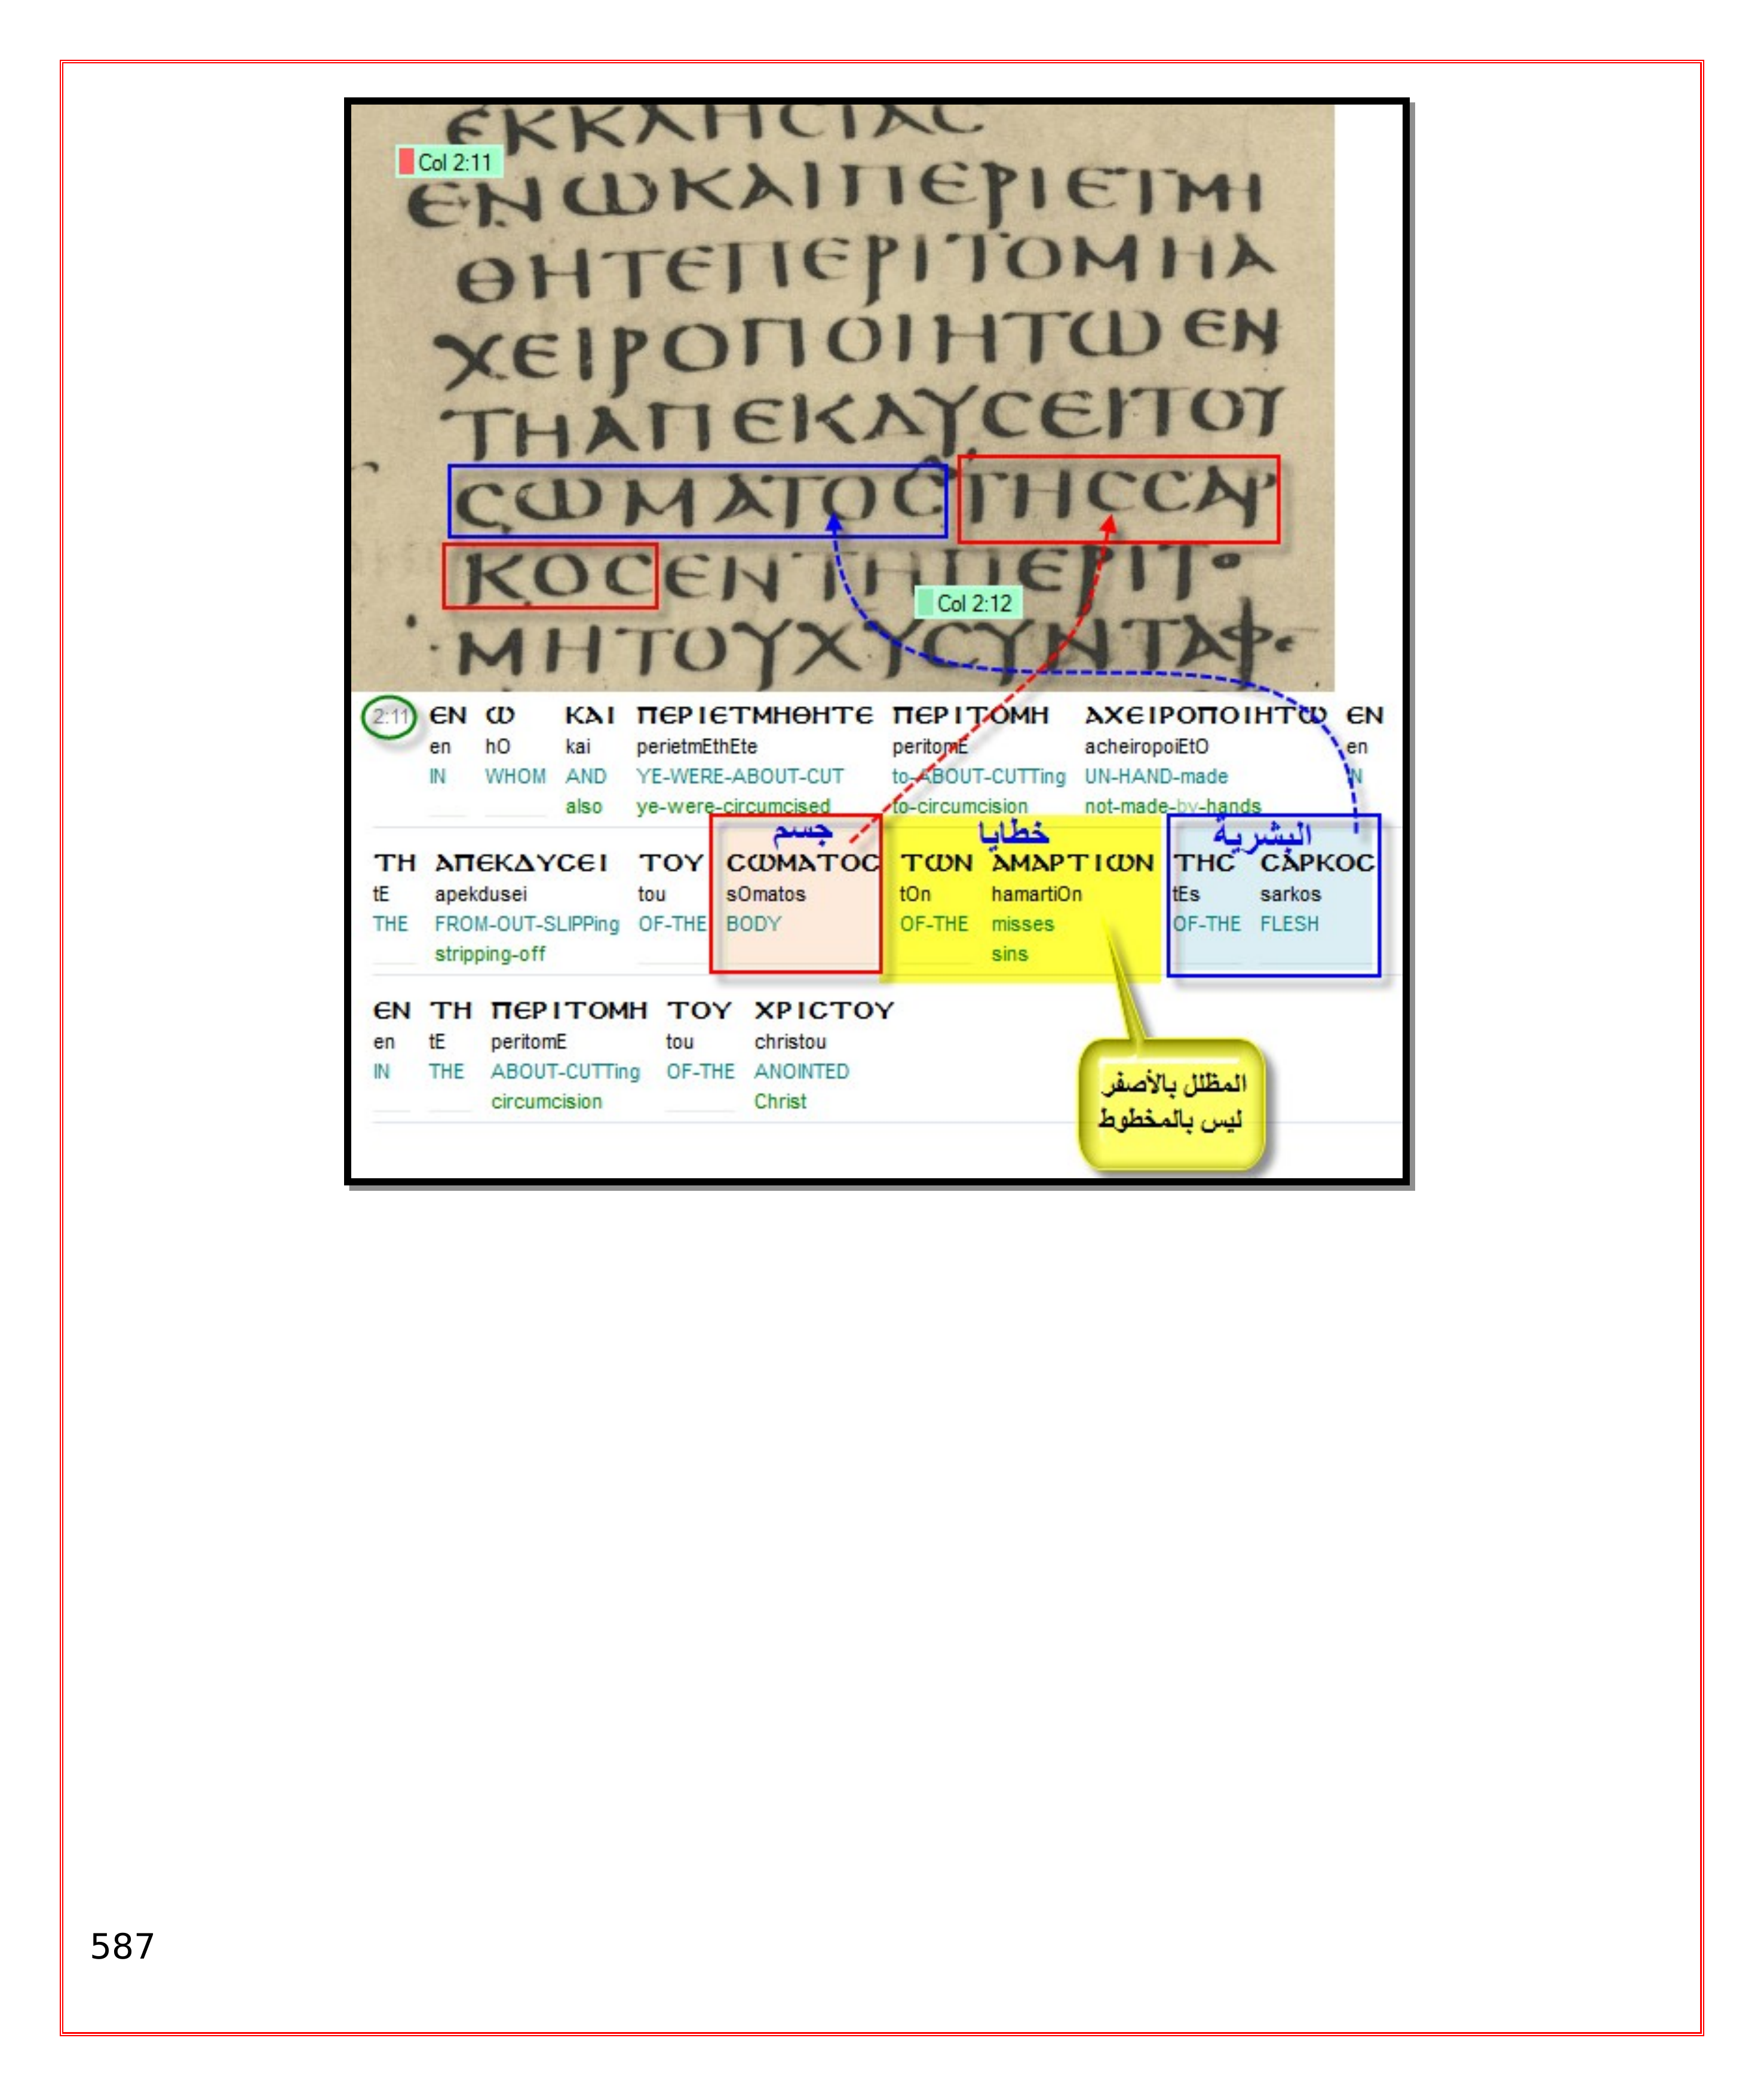 ЄΚΚΛΗCΙΑC
Col 2:11
ЄΝѠΚΑΙΠЄΡΙЄΤΜΗ
ΘΗΤЄΠЄΡΙΤΟΜΗΑ
ΧЄΙΡΟΠΟΙΗΤѠЄΝ
ΤΗΑΠЄΚΔΥCЄΙΤΟΥ
CѠΜΑΤΟCΤΗCCΑΡ
ΚΟCЄΝΤΗΠЄΡΙΤΟ
Col 2:12
ΜΗΤΟΥΧΥCΥΝΤΑΦЄ
2:11 ЄΝ Ѡ ΚΑΙ ΠЄΡΙЄΤΜΗΘΗΤЄ ΠЄΡΙΤΟΜΗ ΑΧЄΙΡΟΠΟΙΗΤѠ ЄΝ
en hO kai perietmEthEte peritomE acheiropoiEtO en
IN WHOM AND YE-WERE-ABOUT-CUT to-ABOUT-CUTTing UN-HAND-made IN
also ye-were-circumcised to-circumcision not-made-by-hands
جسم خطايا البشرية
ΤΗ ΑΠЄΚΔΥCЄΙ ΤΟΥ CѠΜΑΤΟC ΤѠΝ ΑΜΑΡΤΙѠΝ ΤΗC CΑΡΚΟC
tE apekdusei tou sOmatos tOn hamartiOn tEs sarkos
THE FROM-OUT-SLIPPing OF-THE BODY OF-THE misses OF-THE FLESH
stripping-off sins
ЄΝ ΤΗ ΠЄΡΙΤΟΜΗ ΤΟΥ ΧΡΙCΤΟΥ
en tE peritomE tou christou
IN THE ABOUT-CUTTing OF-THE ANOINTED
circumcision Christ
المظلل بالأصفر
ليس بالمخطوط
587